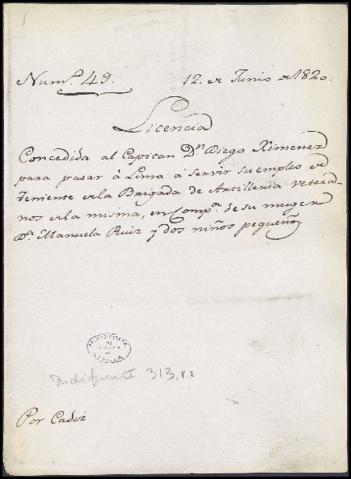 Num.º 49. 12. de Junio de 1820.
Licencia
Concedida al Capitan D.n Diego Ximenez
para pasar à Lima à servir su empleo de
teniente de la Brigada de Artilleria vetera-
nos de la misma, en Comp.a de su muger
D.a Manuela Ruiz y dos niños pequeños
Indiferente 313.
Por Cadiz